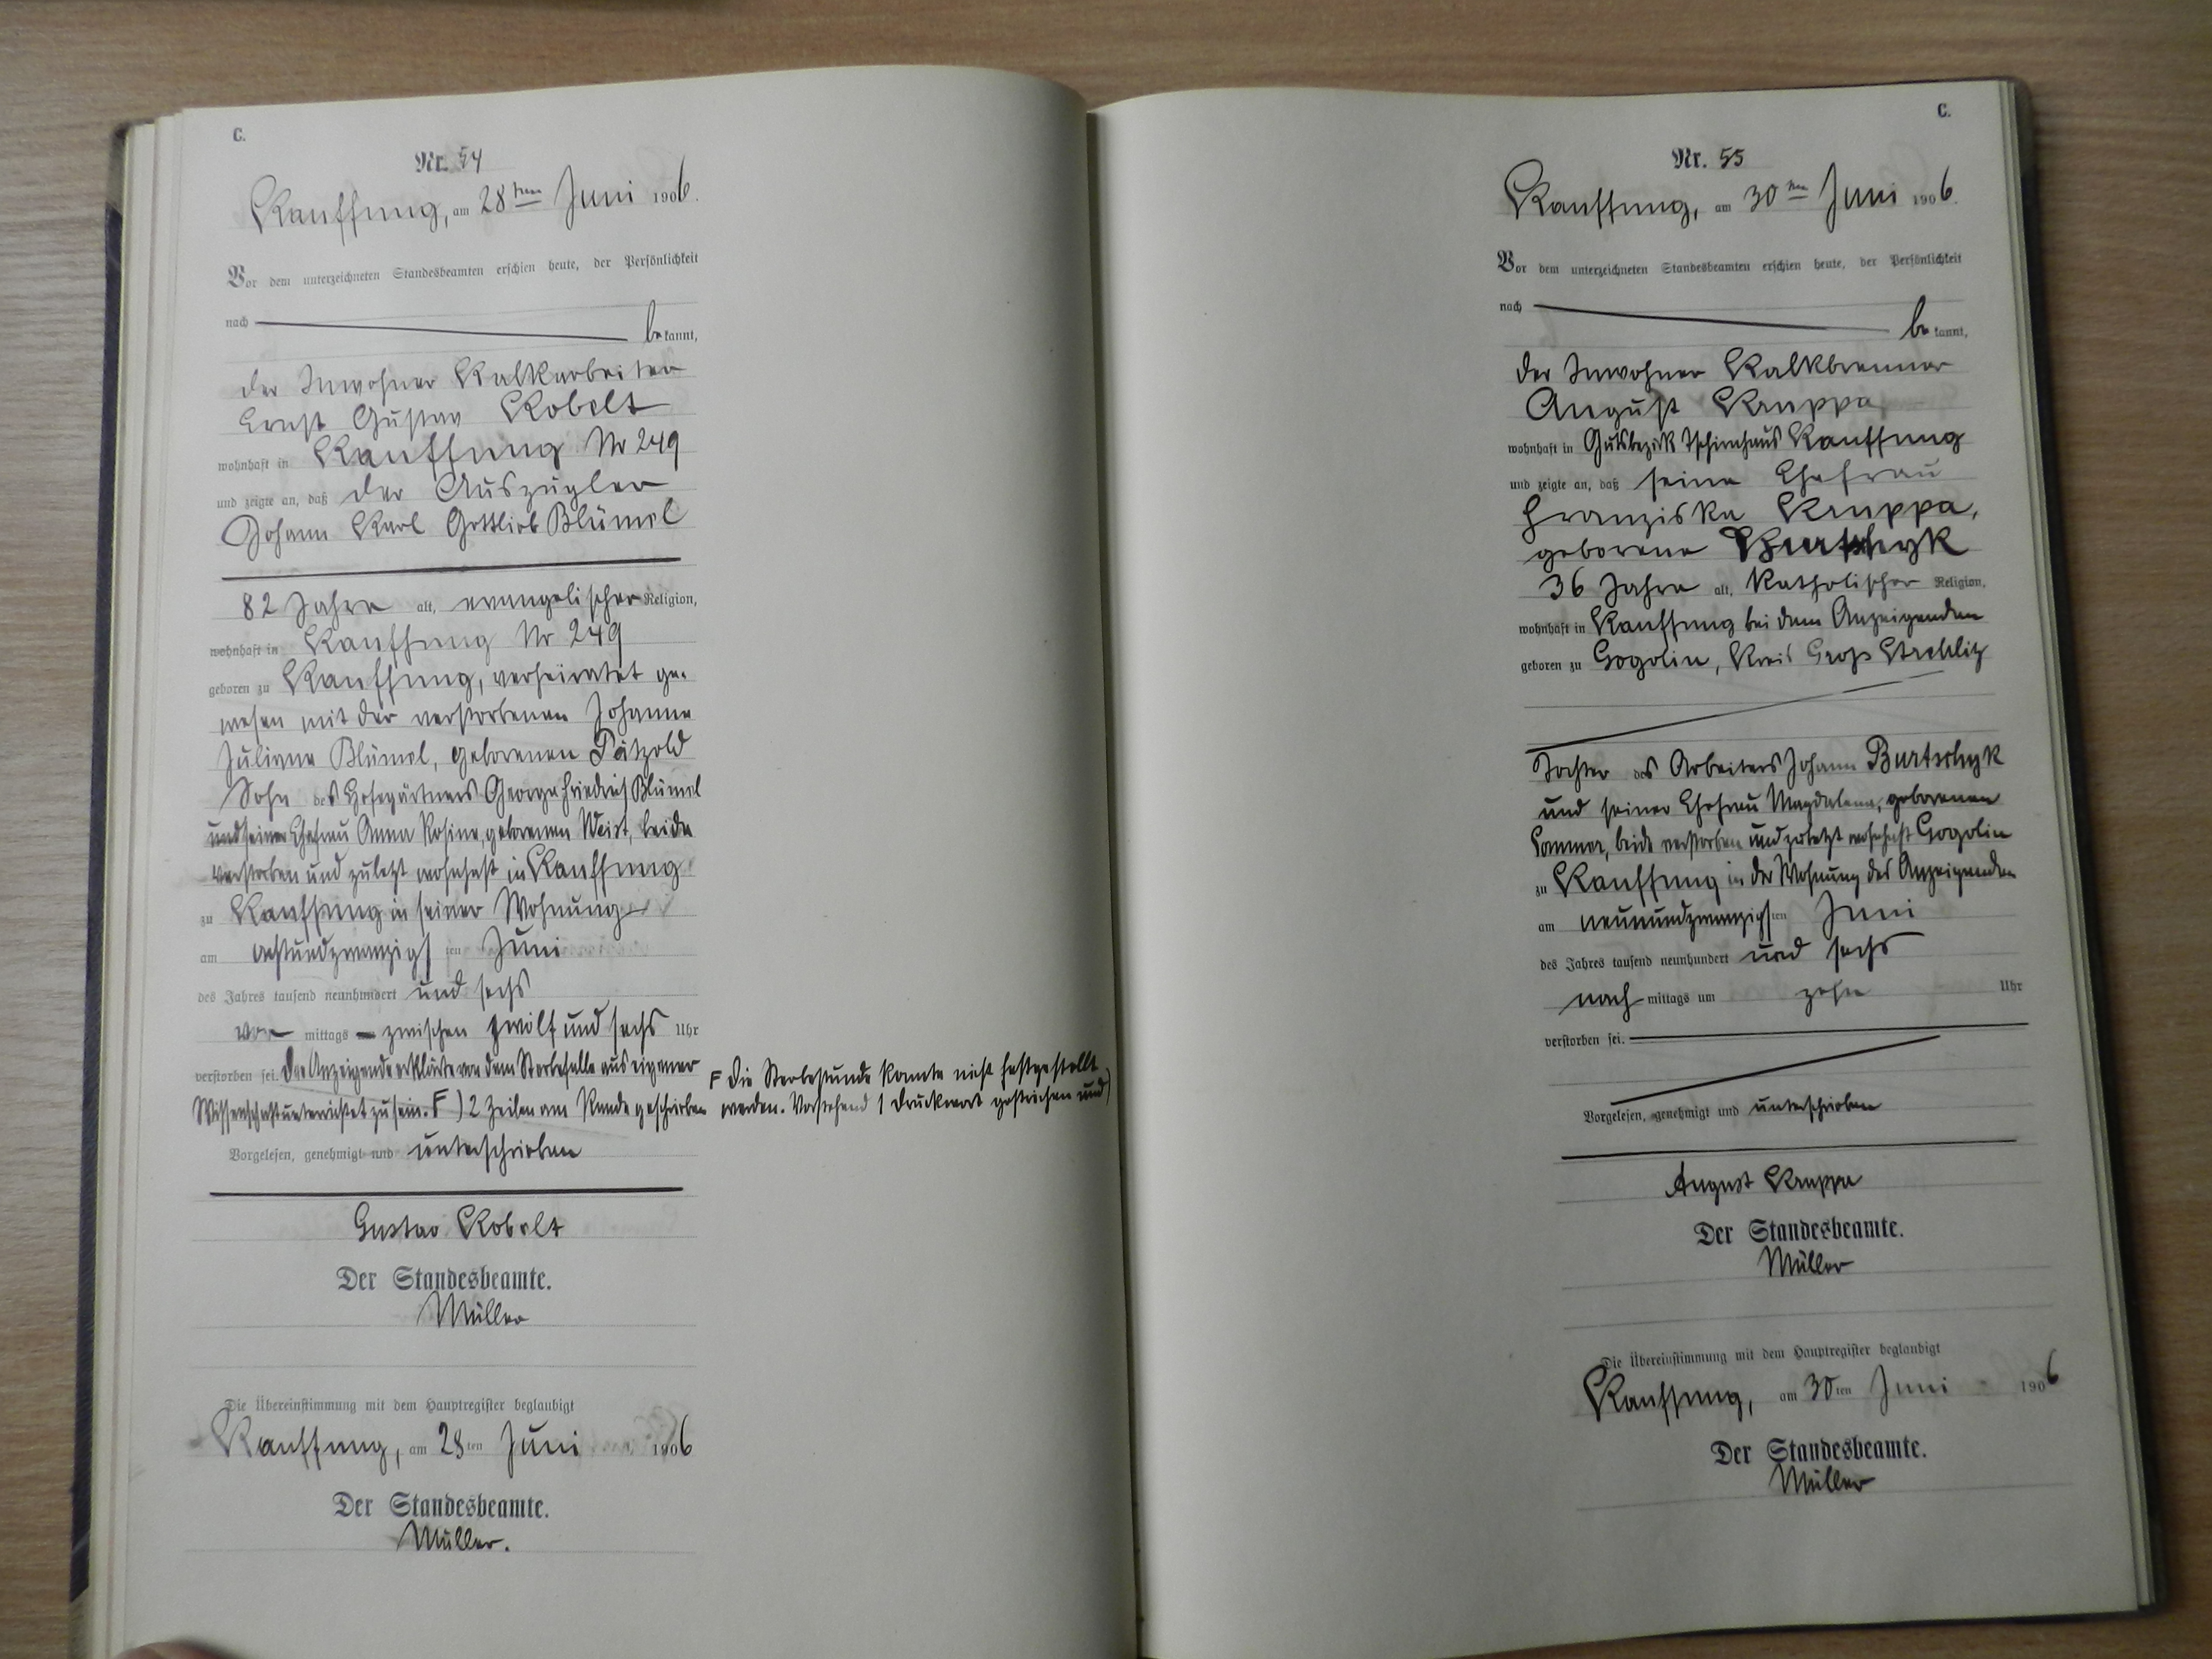 C.
Nr. 54
Kauffung, am 28ten Juni 1906.
Vor dem unterzeichneten Standesbeamten erschien heute, der Persönlichkeit
nach be kannt,
der Inwohner Kalkarbeiter
Ernst Gustav Kobelt
wohnhaft in Kauffung Nr 249
und zeigte an, daß der Auszügler
Johann Karl Gottlieb Blümel
82 Jahre alt, evangelischer Religion,
wohnhaft in Kauffung Nr 249
geboren zu Kauffung, verheiratet ge-
wesen mit der verstorbenen Johanne
Juliane Blümel, geborenen Pätzold
Sohn des Hofegärtners George Friedrich Blümel
und seiner Ehefrau Anna Rosine, geborenen Weist, beide
verstorben und zuletzt wohnhaft in Kauffung
zu Kauffung in seiner Wohnung
am achtundzwanzigsten Juni
des Jahres tausend neunhundert und sechs
vor mittags zwischen zwölf und sechs Uhr
verstorben sei. Der Anzeigende erklärte von dem Sterbefalle aus eigener
Wissenschaft unterrichtet zu sein. F ) 2 Zeilen am Rande geschrieben
F Die Sterbestunde konnte nicht festgestellt
werden. Vorstehend 1 Druckwort gestrichen und)
Vorgelesen, genehmigt und unterschrieben
Gustav Kobelt
Der Standesbeamte.
Müller
Die Übereinstimmung mit dem Hauptregister beglaubigt
Kauffung, am 28ten Juni 1906
Der Standesbeamte.
Müller.
C.
Nr. 55
Kauffung, am 30ten Juni 1906.
Vor dem unterzeichneten Standesbeamten erschien heute, der Persönlichkeit
nach be kannt,
der Inwohner Kalkbrenner
August Kruppa
wohnhaft in Gutsbezirk Tschirnhaus Kauffung
und zeigte an, daß seine Ehefrau
Franziska Kruppa,
geborene Burtschyk
36 Jahre alt, katholischer Religion,
wohnhaft in Kauffung bei dem Anzeigenden
geboren zu Gogolin, Kreis Groß Strehlitz
Tochter des Arbeiters Johann Burtschyk
und seiner Ehefrau Magdalena, geborenen
Sommer, beide verstorben und zuletzt wohnhaft Gogolin
zu Kauffung in der Wohnung des Anzeigenden
am neunundzwanzigsten Juni
des Jahres tausend neunhundert und sechs
nach mittags um zehn Uhr
verstorben sei.
Vorgelesen, genehmigt und unterschrieben
August Kruppa
Der Standesbeamte.
Müller
Die Übereinstimmung mit dem Hauptregister beglaubigt
Kauffung, am 30ten Juni 1906
Der Standesbeamte.
Müller